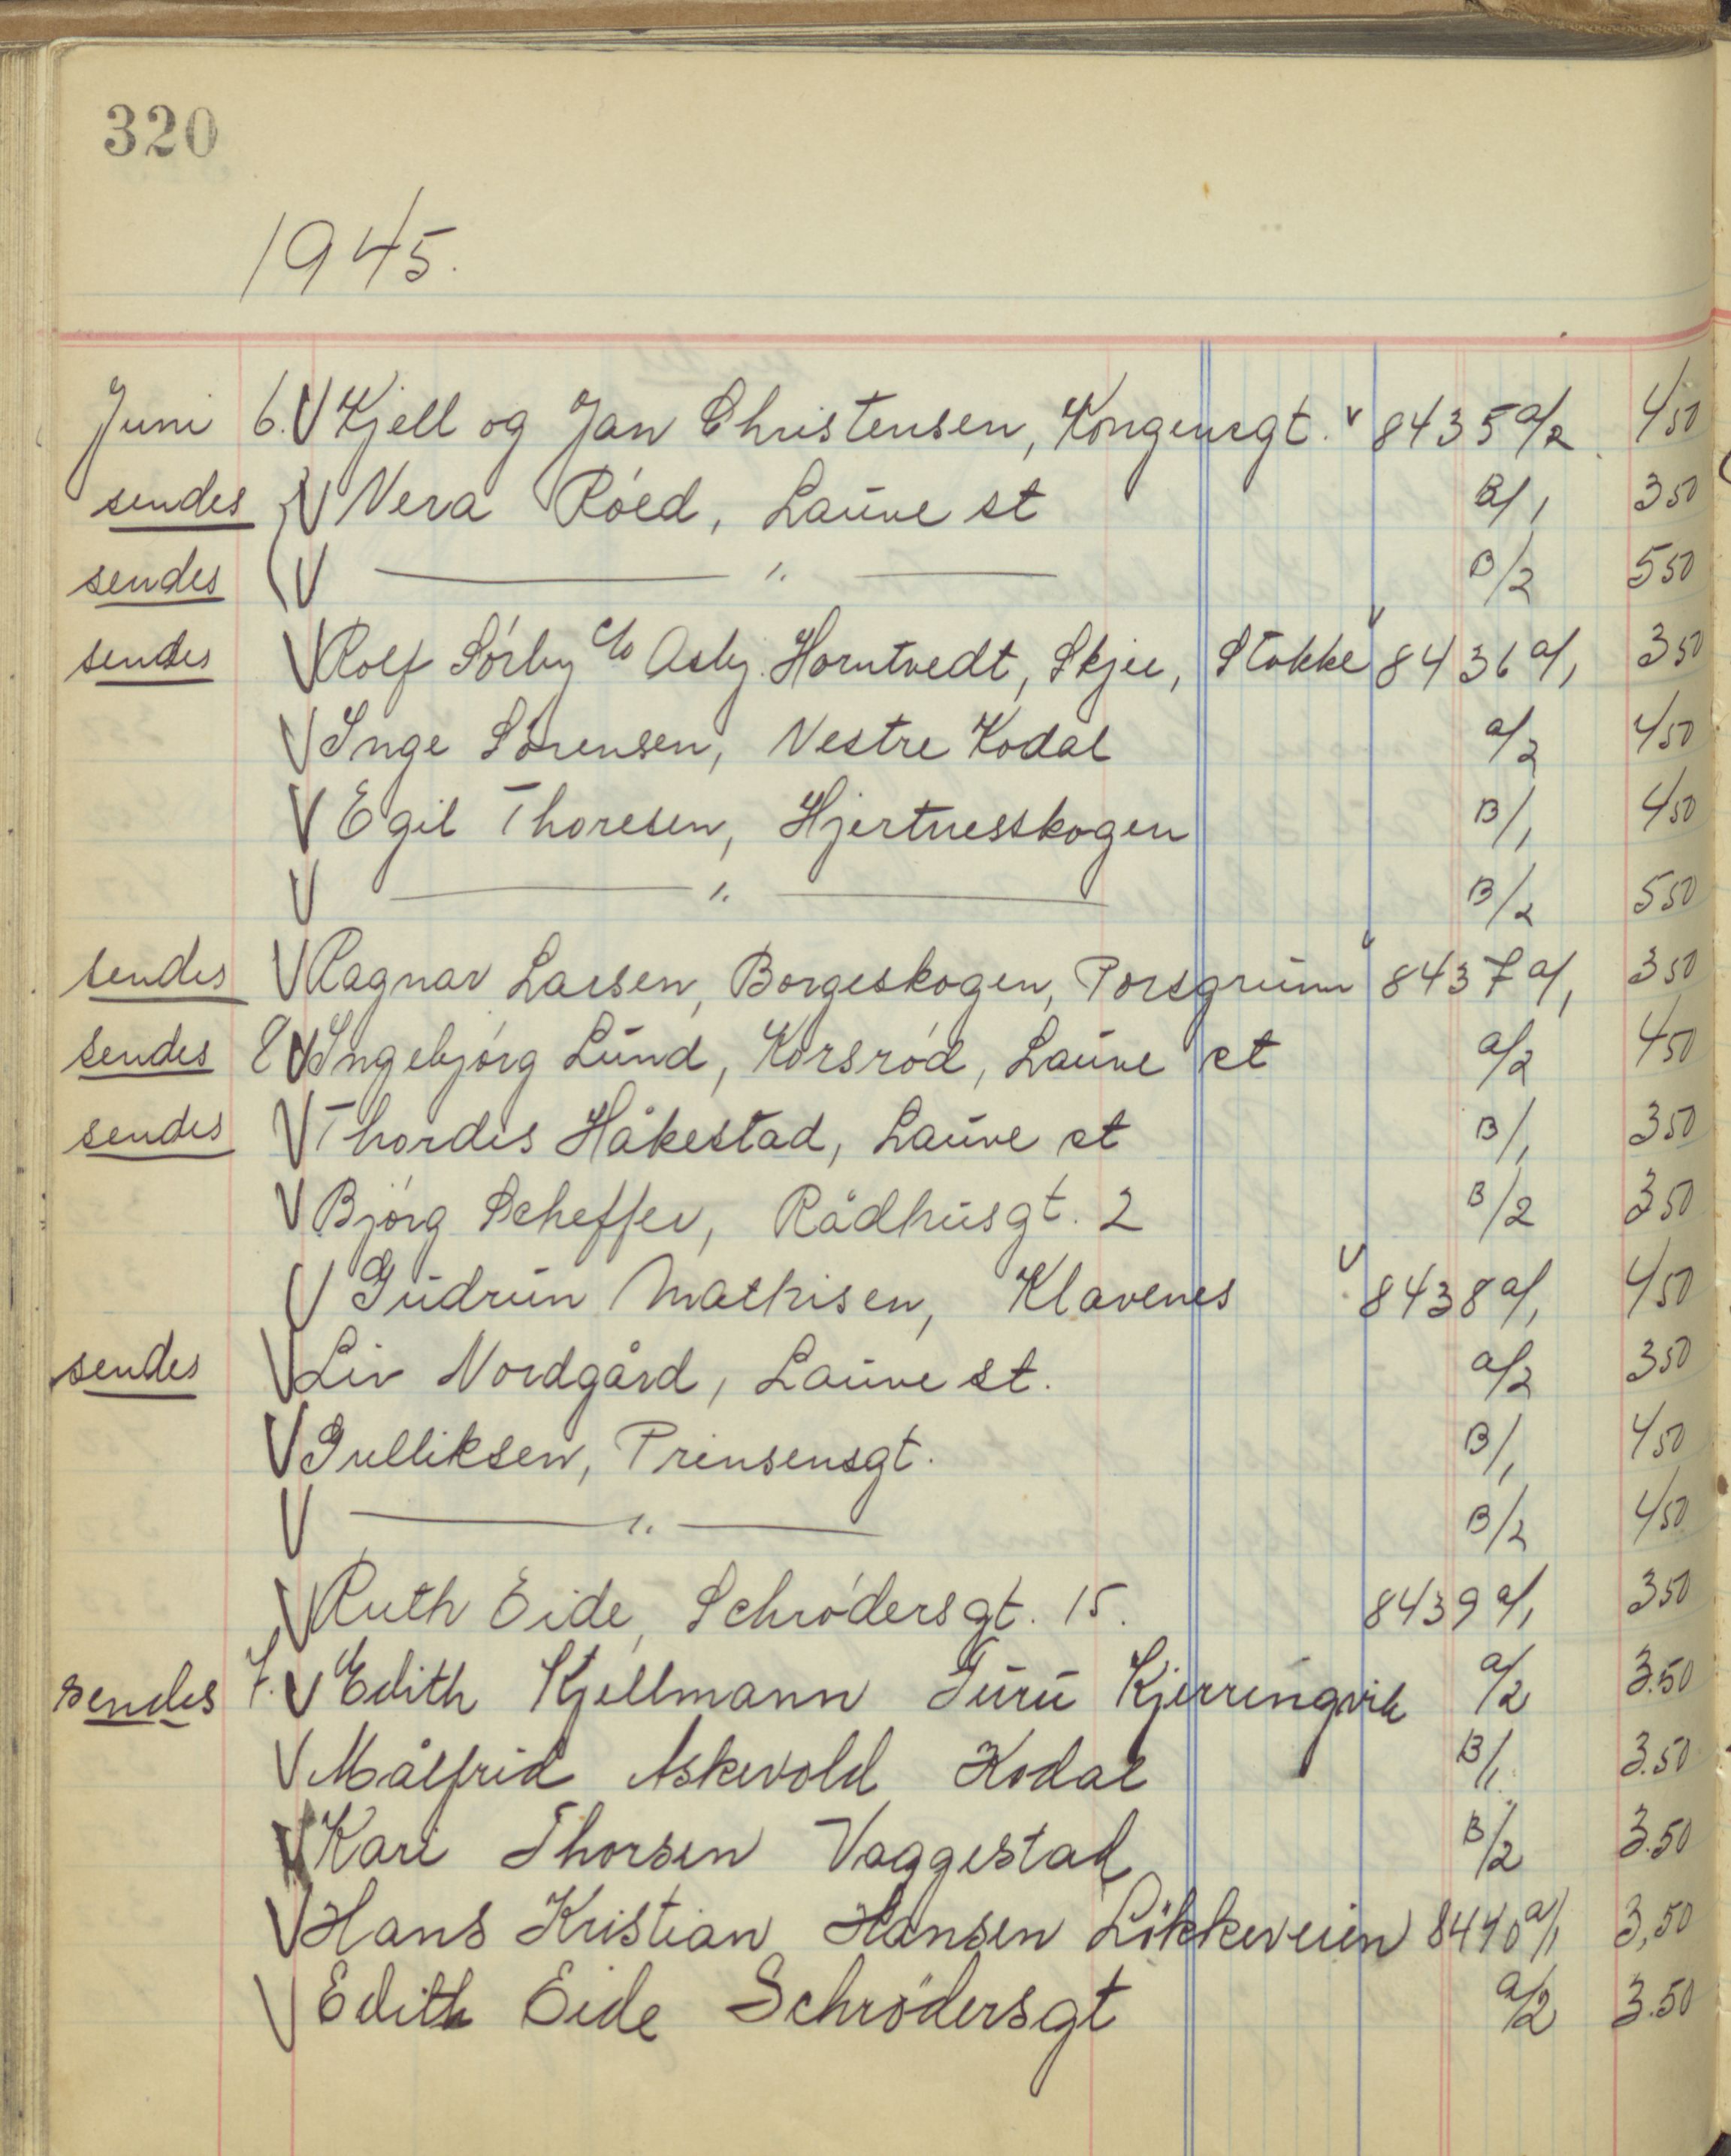 320
1945.
Juni 6. V Kjell og Jan Christensen, Kongensgt. v 8435 a/2 4 50
sendes V Vera Róed, Lauve st B/1 3 50
sendes V — " — B/2 5 50
sendes V Rolf Sórby c/o Asbj. Horntvedt, Skjee, Stokke v 8436 a/1 3 50
V Inge Sörensen, Vestre Kodal a/2 4 50
V Egil Thoresen, Hjertnesskogen B/1 4 50
V — " — B/2 5 50
sendes V Ragnar Larsen, Borgeskogen, Porsgrunn v 8437 a/1 3 50
sendes 8 V Ingebjórg Lund, Korsród, Lauve st a/2 4 50
sendes V Thordis Håkestad, Lauve st B/1 3 50
V Bjórg Scheffer, Rådhusgt. 2 B/2 3 50
V Gudrun Mathisen, Klavenes v 8438 a/1 4 50
sendes V Liv Nordgård, Lauve st. a/2 3 50
V Gulliksen, Prinsensgt. B/1 4 50
V — " — B/2 4 50
V Ruth Eide, Schródersgt. 15. 8439 a/1 3 50
sendes 7. V Edith Kjellmann Furu Kjerringvik a/2 3.50
V Målfrid Askevold Kodal B/1 3.50
V Kari Thorsen Vaggestad B/2 3.50
V Hans Kristian Hansen Lökkeveien 8440 a/1 3,50
V Edith Eide Schrödersgt a/2 3.50